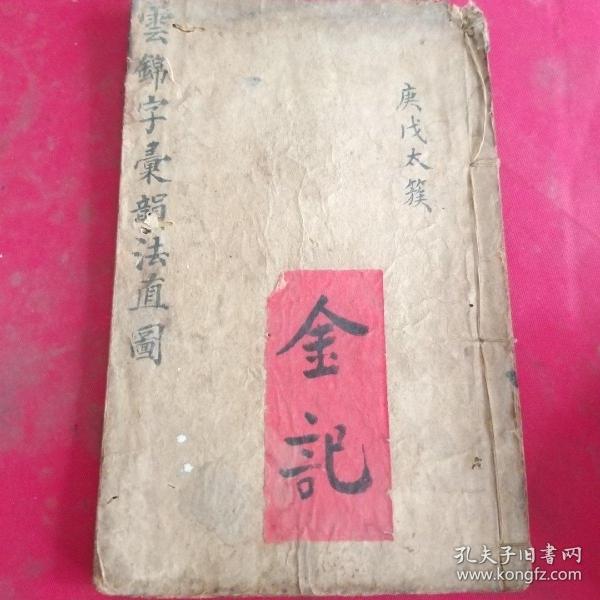 庚戌太簇
金記
雲錦字彙韻法直圖
孔夫子旧書网
www.kongfz.com